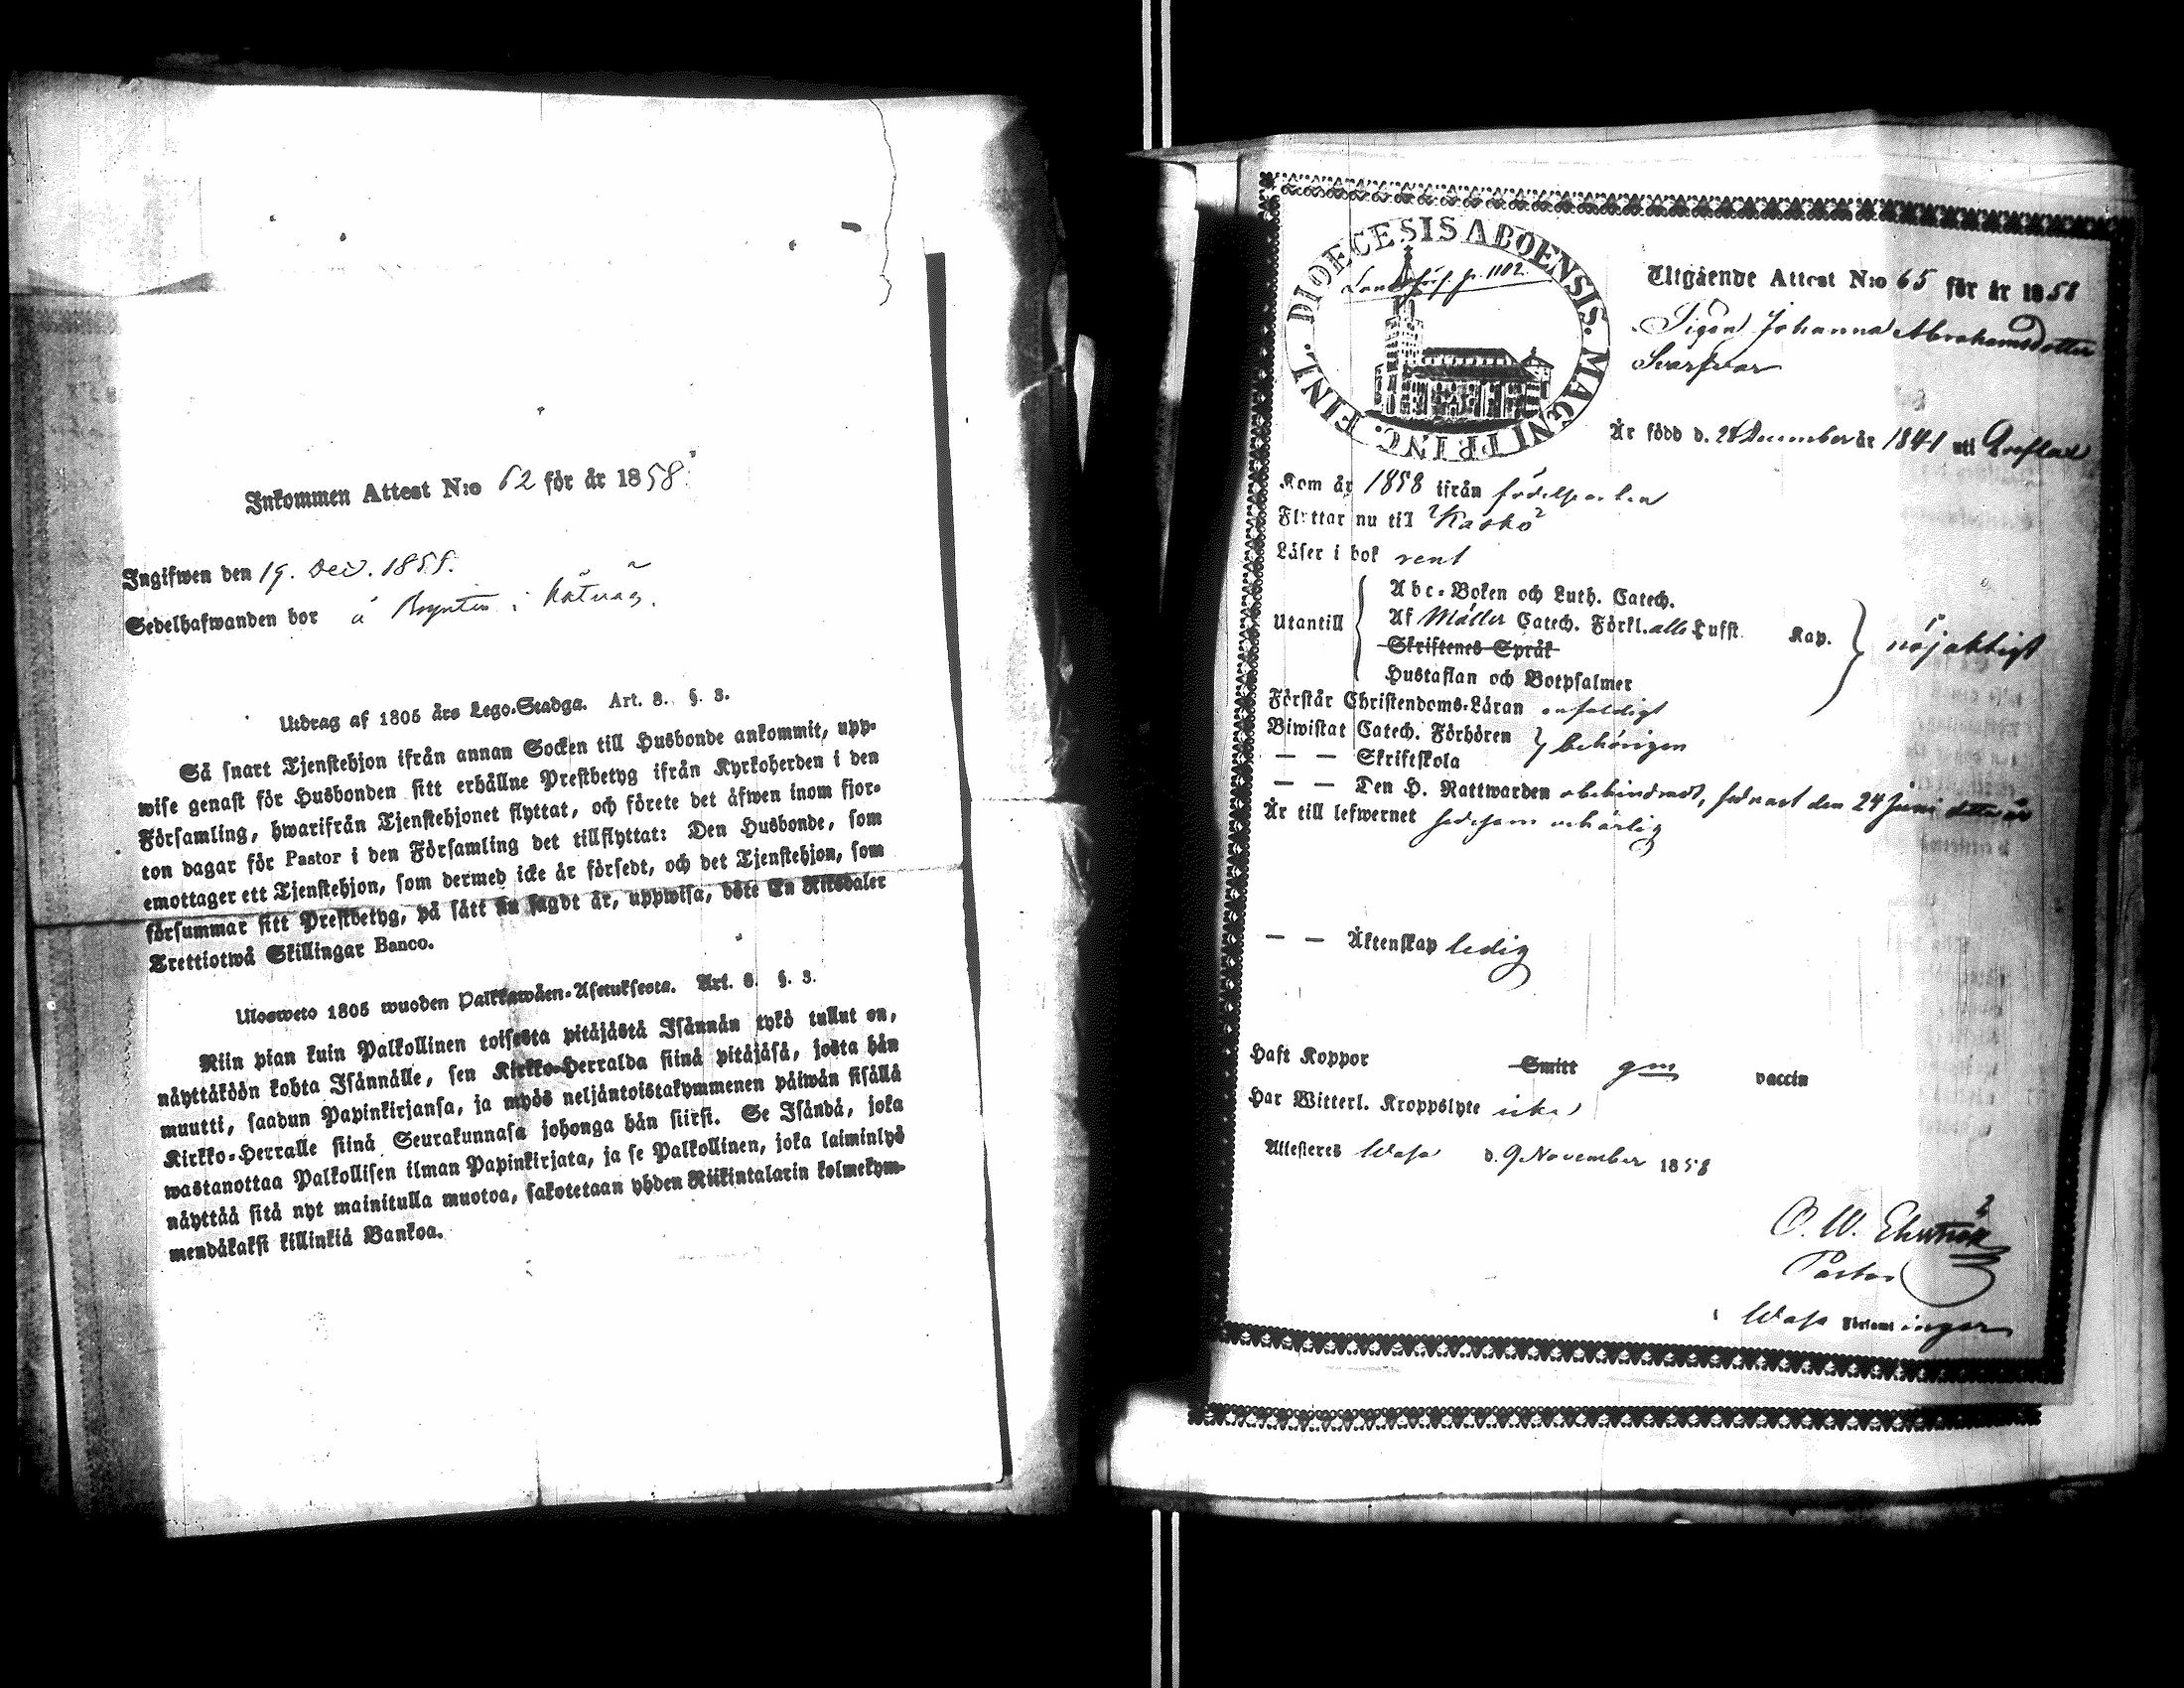 Inkommen Attest N:o 62 för år 1858.
Ingifwen den 19. Dec. 1858.
Sedelhafwanden bor å i Nåtnäs.
Utdrag af 1805 års Lego-Stadga. Art. 8. §. 3.
Så snart Tjenstehjon ifrån annan Socken till Husbonde ankommit, upp-
wise genast för Husbonden sitt erhållne Prestbetyg ifrån Kyrkoherden i den
Församling, hwarifrån Tjenstehjonet flyttat, och förete det äfwen inom fjor-
ton dagar för Pastor i den Församling det tillflyttat: Den Husbonde, som
emottager ett Tjenstehjon, som dermed icke är försedt, och det Tjenstehjon, som
försummar sitt Prestbetyg, på sätt nu sagdt är, uppwisa, böte En Riksdaler
Trettiotwå Skillingar Banco.
Ulosweto 1805 wuoden Palkkawäen-Asetuksesta. Art. 8. §. 3.
Niin pian kuin Palkollinen toisesta pitäjästä Isännän tykö tullut on,
näyttäköön kohta Isännälle, sen Kirkko-Herralda siinä pitäjäsä, josta hän
muutti, saadun Papinkirjansa, ja myös neljäntoistakymmenen päiwän sisällä
Kirkko-Herralle siinä Seurakunnasa johonga hän siirsi. Se Isändä, joka
wastanottaa Palkollisen ilman Papinkirjata, ja se Palkollinen, joka laiminlyö
näyttää sitä nyt mainitulla muotoa, sakotetaan yhden Riikintalarin kolmekym-
mendäkaksi killinkiä Bankoa.
DIOECESIS ABOENSIS. MAGNI PRINC. FINL.
p. 1102.
Utgående Attest N:o 65 för år 1858
Pigan Johanna Abrahamsdotter
Svarfvar
Är född d. 28 December år 1841 uti
Kom år 1858 ifrån födelseorten
Flyttar nu till "Kaskö"
Läser i bok rent
Utantill
Abc-Boken och Luth. Catech.
Af Möller Catech. Förkl. alla Lufft. Kap.
Skriftenes Språk
Hustaflan och Botpsalmer
nöjaktigt
Förstår Christendoms-Läran enfaldigt
Biwistat Catech. Förhören
— — Skriftskola
behörigen
— — Den H. Nattwarden obehindrad, sednast den 24 Juni detta år
Är till lefwernet sedesam och ärlig
— — Äktenskap ledig
Haft Koppor Smitt gm vaccin
Har Witterl. Kroppslyte icke
Attesteres Wasa d. 9 November 1858
Pastor
i Wasa Församlingar